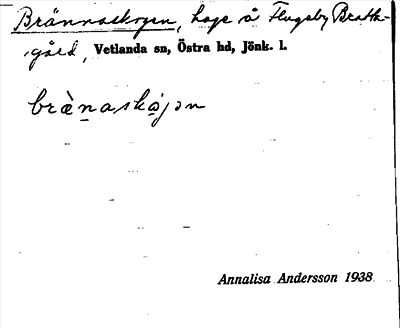 Brännaskogen, hage å Flugeby Bratt-
gård, Vetlanda sn, Östra hd, Jönk. l.
brànaskójən
Annalisa Andersson 1938